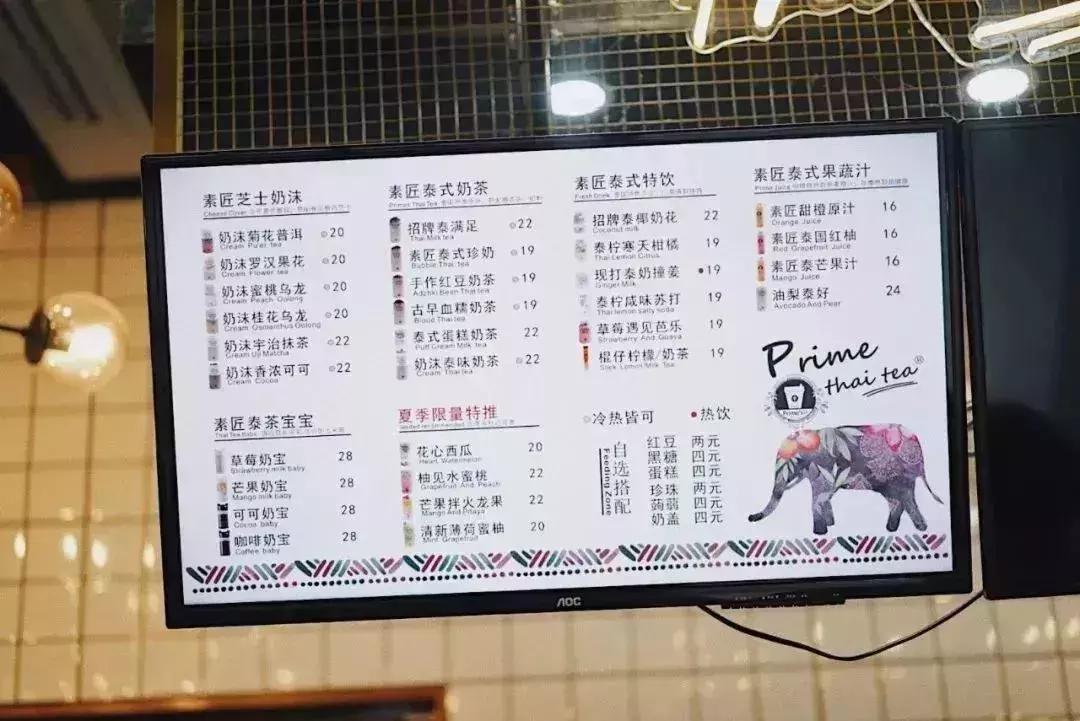 素匠芝士奶沫
Cheese Cover
奶沫菊花普洱 20
Cream Pu'er tea
奶沫罗汉果花 20
Cream Flower tea
奶沫蜜桃乌龙 20
Cream Peach Oolong
奶沫桂花乌龙 20
Cream Osmanthus Oolong
奶沫宇治抹茶 22
Cream Uji Matcha
奶沫香浓可可 22
Cream Cocoa
素匠泰茶宝宝
Thai Tea Baby
草莓奶宝 28
Strawberry milk baby
芒果奶宝 28
Mango milk baby
可可奶宝 28
Cocoa baby
咖啡奶宝 28
Coffee baby
素匠泰式奶茶
Primes Thai Tea
招牌泰满足 22
Thai Milk tea
素匠泰式珍奶 19
Bubble Thai tea
手作红豆奶茶 19
Adzhki Bean Thai tea
古早血糯奶茶 19
Blood Thai tea
泰式蛋糕奶茶 22
Puff Cream Milk tea
奶沫泰味奶茶 22
Cream Thai tea
夏季限量特推
花心西瓜 20
Heart Watermelon
柚见水蜜桃 22
Grapefruit And Peach
芒果拌火龙果 22
Mango And Pitaya
清新薄荷蜜柚 20
Mint Grapefruit
素匠泰式特饮
Fresh Drink
招牌泰椰奶花 22
Coconut milk
泰柠寒天柑橘 19
Thai Lemon Citrus
现打泰奶撞姜 19
Ginger Milk
泰柠咸味苏打 19
Thai lemon salty soda
草莓遇见芭乐 19
Strawberry And Guava
棍仔柠檬/奶茶 19
Stick Lemon Milk Tea
冷热皆可 热饮
自选搭配
Feeding Zone
红豆 两元
黑糖 四元
蛋糕 四元
珍珠 两元
蒟蒻 四元
奶盖 四元
素匠泰式果蔬汁
Prime Juice
素匠甜橙原汁 16
Orange Juice
素匠泰国红柚 16
Red Grapefruit Juice
素匠泰芒果汁 16
Mango Juice
油梨泰好 24
Avocado And Pear
Prime
thai tea®
AOC